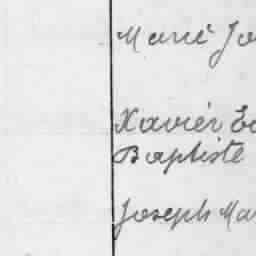 Marie Jo
Xavier Ed
Baptiste
Joseph Mar